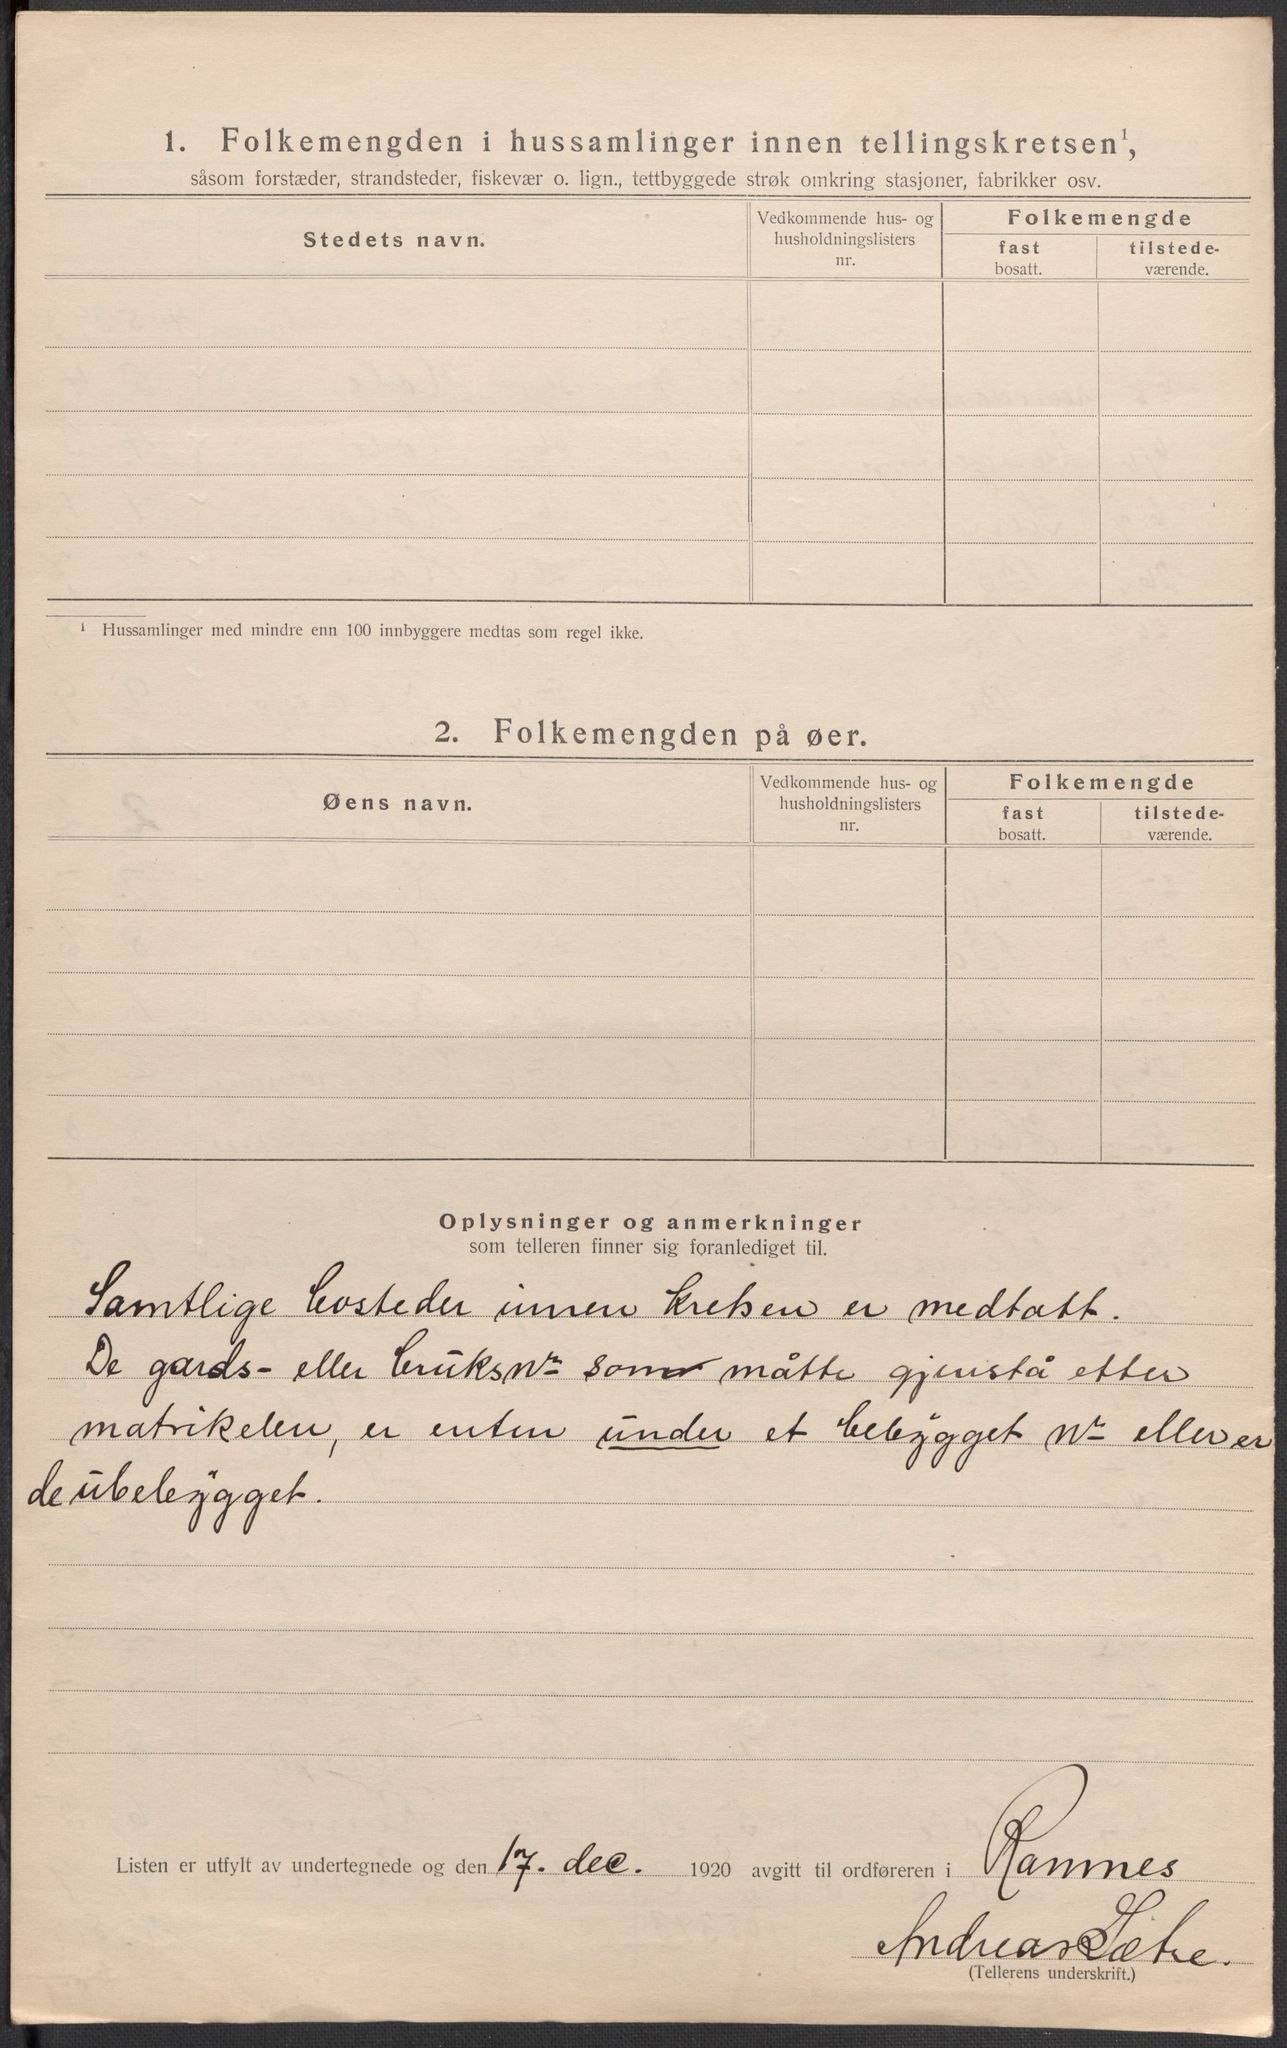 1. Folkemengden i hussamlinger innen tellingskretsen¹,
såsom forstæder, strandsteder, fiskevær o. lign., tettbyggede strøk omkring stasjoner, fabrikker osv.
Stedets navn.
Vedkommende hus- og
husholdningslisters
nr.
Folkemengde
fast
bosatt.
tilstede-
værende.
¹ Hussamlinger med mindre enn 100 innbyggere medtas som regel ikke.
2. Folkemengden på øer.
Øens navn.
Vedkommende hus- og
husholdningslisters
nr.
Folkemengde
fast
bosatt.
tilstede-
værende.
Oplysninger og anmerkninger
som telleren finner sig foranlediget til.
Samtlige bosteder innen kretsen er medtatt.
De gards- eller bruksnr som måtte gjenstå etter
matrikelen, er enten under et bebygget nr eller er
de ubebygget.
Listen er utfylt av undertegnede og den 17. dec. 1920 avgitt til ordføreren i Ramnes
Andreas Sætre.
(Tellerens underskrift.)